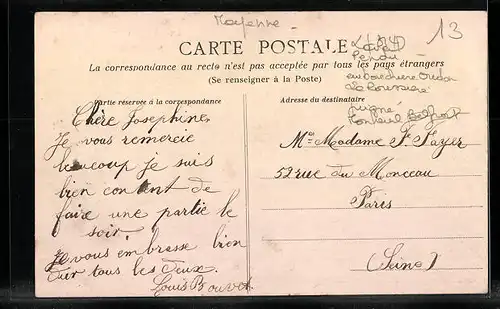 Mayenne
13
CARTE POSTALE
La correspondance au recto n'est pas acceptée par tous les pays étrangers
(Se renseigner à la Poste)
Partie réservée à la correspondance
Adresse du destinataire
Chère Josephine
Je vous remercie
beaucoup je suis
bien content de
faire une partie le
soir.
Je vous embrasse bien
tous les deux.
Louis Bouvet
Madame Fayer
52 rue du Monceau
Paris
(Seine)